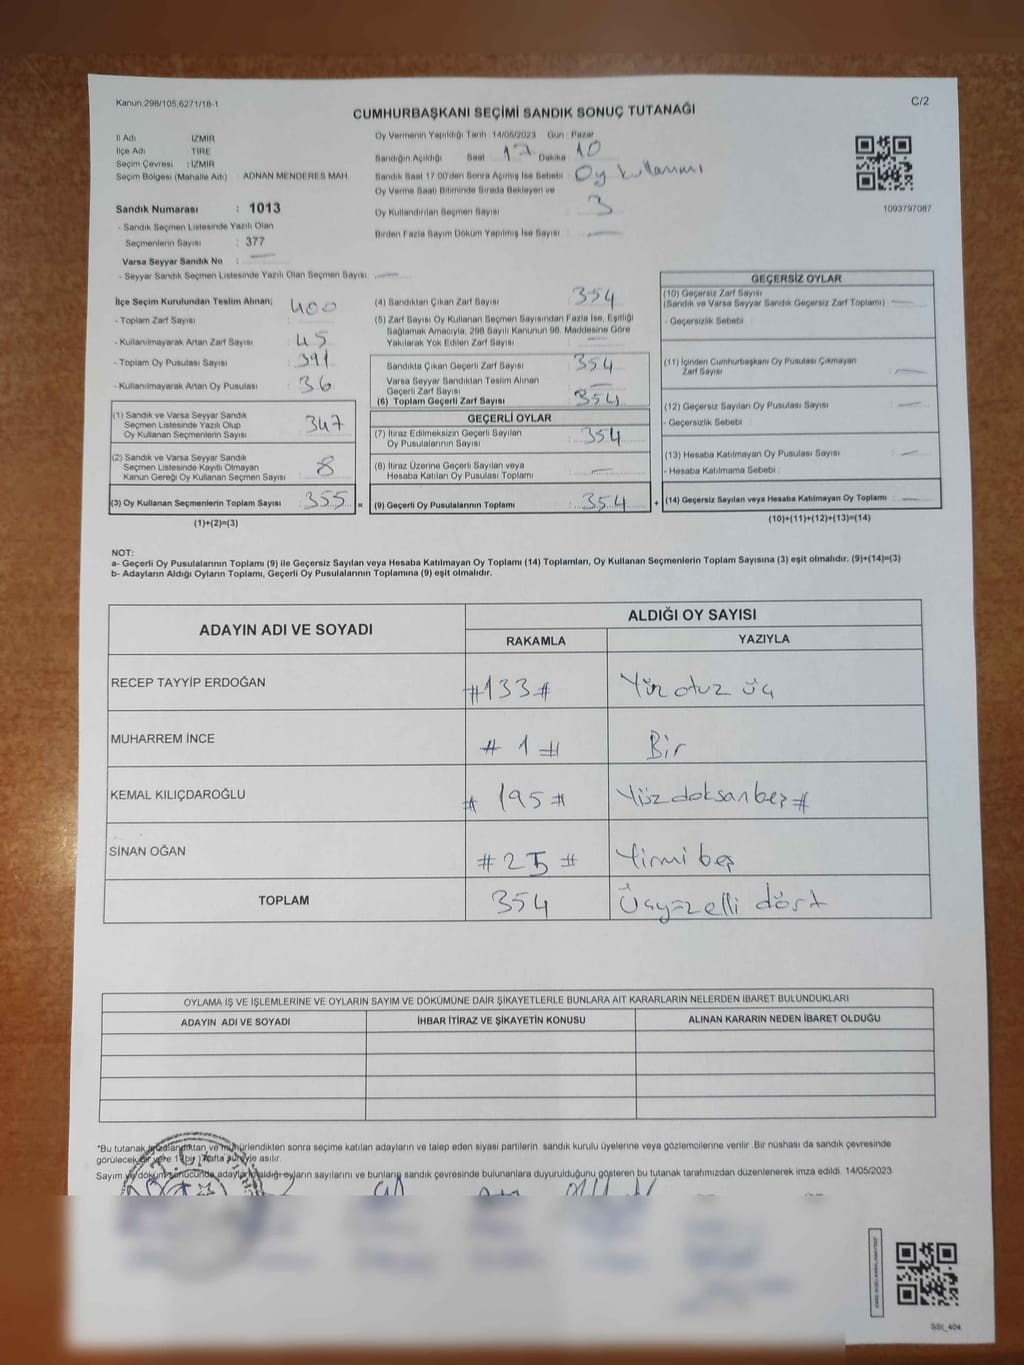 Kanun.298/105,6271/18-1
C/2
CUMHURBAŞKANI SEÇİMİ SANDIK SONUÇ TUTANAĞI
İl Adı İZMİR
İlçe Adı : TİRE
Seçim Çevresi : İZMİR
Seçim Bölgesi (Mahalle Adı) : ADNAN MENDERES MAH.
Sandık Numarası : 1013
- Sandık Seçmen Listesinde Yazılı Olan
Seçmenlerin Sayısı : 377
Varsa Seyyar Sandık No :
- Seyyar Sandık Seçmen Listesinde Yazılı Olan Seçmen Sayısı :
Oy Vermenin Yapıldığı Tarih : 14/05/2023 Gün : Pazar
Sandığın Açıldığı Saat 17 Dakika 10
Sandık Saat 17.00'den Sonra Açılmış İse Sebebi : Oy kullanımı
Oy Verme Saati Bitiminde Sırada Bekleyen ve
Oy Kullandırılan Seçmen Sayısı : 3
Birden Fazla Sayım Döküm Yapılmış İse Sayısı :
1093797087
İlçe Seçim Kurulundan Teslim Alınan;
- Toplam Zarf Sayısı : 400
- Kullanılmayarak Artan Zarf Sayısı : 45
- Toplam Oy Pusulası Sayısı : 391
- Kullanılmayarak Artan Oy Pusulası : 36
(1) Sandık ve Varsa Seyyar Sandık
Seçmen Listesinde Yazılı Olup
Oy Kullanan Seçmenlerin Sayısı : 347
(2) Sandık ve Varsa Seyyar Sandık
Seçmen Listesinde Kayıtlı Olmayan
Kanun Gereği Oy Kullanan Seçmen Sayısı : 8
(3) Oy Kullanan Seçmenlerin Toplam Sayısı : 355 =
(1)+(2)=(3)
(4) Sandıktan Çıkan Zarf Sayısı : 354
(5) Zarf Sayısı Oy Kullanan Seçmen Sayısından Fazla İse, Eşitliği
Sağlamak Amacıyla, 298 Sayılı Kanunun 98. Maddesine Göre
Yakılarak Yok Edilen Zarf Sayısı :
Sandıkta Çıkan Geçerli Zarf Sayısı : 354
Varsa Seyyar Sandıktan Teslim Alınan
Geçerli Zarf Sayısı :
(6) Toplam Geçerli Zarf Sayısı : 354
GEÇERLİ OYLAR
(7) İtiraz Edilmeksizin Geçerli Sayılan
Oy Pusulalarının Sayısı : 354
(8) İtiraz Üzerine Geçerli Sayılan veya
Hesaba Katılan Oy Pusulası Toplamı :
(9) Geçerli Oy Pusulalarının Toplamı : 354 +
GEÇERSİZ OYLAR
(10) Geçersiz Zarf Sayısı
(Sandık ve Varsa Seyyar Sandık Geçersiz Zarf Toplamı) :
- Geçersizlik Sebebi :
(11) İçinden Cumhurbaşkanı Oy Pusulası Çıkmayan
Zarf Sayısı :
(12) Geçersiz Sayılan Oy Pusulası Sayısı :
- Geçersizlik Sebebi :
(13) Hesaba Katılmayan Oy Pusulası Sayısı :
- Hesaba Katılmama Sebebi :
(14) Geçersiz Sayılan veya Hesaba Katılmayan Oy Toplamı :
(10)+(11)+(12)+(13)=(14)
NOT:
a- Geçerli Oy Pusulalarının Toplamı (9) ile Geçersiz Sayılan veya Hesaba Katılmayan Oy Toplamı (14) Toplamları, Oy Kullanan Seçmenlerin Toplam Sayısına (3) eşit olmalıdır. (9)+(14)=(3)
b- Adayların Aldığı Oyların Toplamı, Geçerli Oy Pusulalarının Toplamına (9) eşit olmalıdır.
ADAYIN ADI VE SOYADI ALDIĞI OY SAYISI
RAKAMLA YAZIYLA
RECEP TAYYİP ERDOĞAN #133# Yüz otuz üç
MUHARREM İNCE # 1 # Bir
KEMAL KILIÇDAROĞLU # 195 # Yüz doksan beş #
SİNAN OĞAN # 25 # Yirmi beş
TOPLAM 354 Üçyüzelli dört
OYLAMA İŞ VE İŞLEMLERİNE VE OYLARIN SAYIM VE DÖKÜMÜNE DAİR ŞİKAYETLERLE BUNLARA AİT KARARLARIN NELERDEN İBARET BULUNDUKLARI
ADAYIN ADI VE SOYADI İHBAR İTİRAZ VE ŞİKAYETİN KONUSU ALINAN KARARIN NEDEN İBARET OLDUĞU
*Bu tutanak imzalandıktan ve mühürlendikten sonra seçime katılan adayların ve talep eden siyasi partilerin sandık kurulu üyelerine veya gözlemcilerine verilir. Bir nüshası da sandık çevresinde
görülecek bir yere 1 (bir) hafta süreyle asılır.
Sayım ve döküm sonucunda adayların aldığı oyların sayılarını ve bunların sandık çevresinde bulunanlara duyurulduğunu gösteren bu tutanak tarafımızdan düzenlenerek imza edildi. 14/05/2023
SSt_404